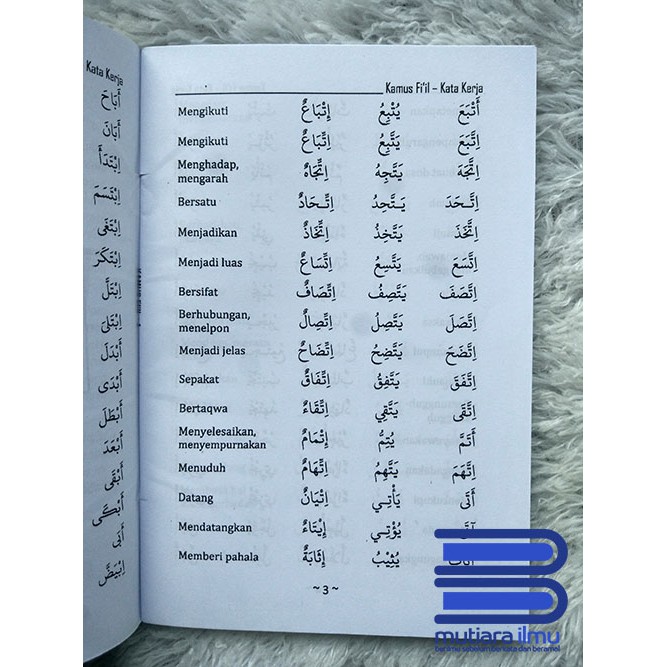 Kata Kerja
أَبَاحَ
أَبَانَ
اِبْتَدَأَ
اِبْتَسَمَ
اِبْتَغَى
اِبْتَكَرَ
اِبْتَلَّ
اِبْتَلَى
أَبْدَلَ
أَبْدَى
أَبْطَلَ
أَبْعَدَ
أَبْقَى
أَبْكَى
أَبَى
اِبْيَضَّ
Kamus Fi'il – Kata Kerja
أَتْبَعَ يُتْبِعُ إِتْبَاعٌ Mengikuti
اِتَّبَعَ يَتَّبِعُ اِتِّبَاعٌ Mengikuti
اِتَّجَهَ يَتَّجِهُ اِتِّجَاهٌ Menghadap,
mengarah
اِتَّـحَدَ يَـتَّـحِدُ اِتِّـحَادٌ Bersatu
اِتَّخَذَ يَتَّخِذُ اِتِّخَاذٌ Menjadikan
اِتَّسَعَ يَتَّسِعُ اِتِّسَاعٌ Menjadi luas
اِتَّصَفَ يَتَّصِفُ اِتِّصَافٌ Bersifat
اِتَّصَلَ يَتَّصِلُ اِتِّصِالٌ Berhubungan,
menelpon
اِتَّضَحَ يَتَّضِحُ اِتِّضَاحٌ Menjadi jelas
اِتَّفَقَ يَتَّفِقُ اِتِّفَاقٌ Sepakat
اِتَّقَى يَتَّقِي اِتِّقَاءٌ Bertaqwa
أَتَمَّ يُتِمُّ إِتْمَامٌ Menyelesaikan,
menyempurnakan
اِتَّهَمَ يَتَّهِمُ اِتِّهَامٌ Menuduh
أَتَى يَأْتِـي إِتْيَانٌ Datang
يُؤْتِـي إِيْتَاءٌ Mendatangkan
يُثِيْبُ إِثَابَةٌ Memberi pahala
~ 3 ~
mutiara ilmu
berilmu sebelum berkata dan beramal